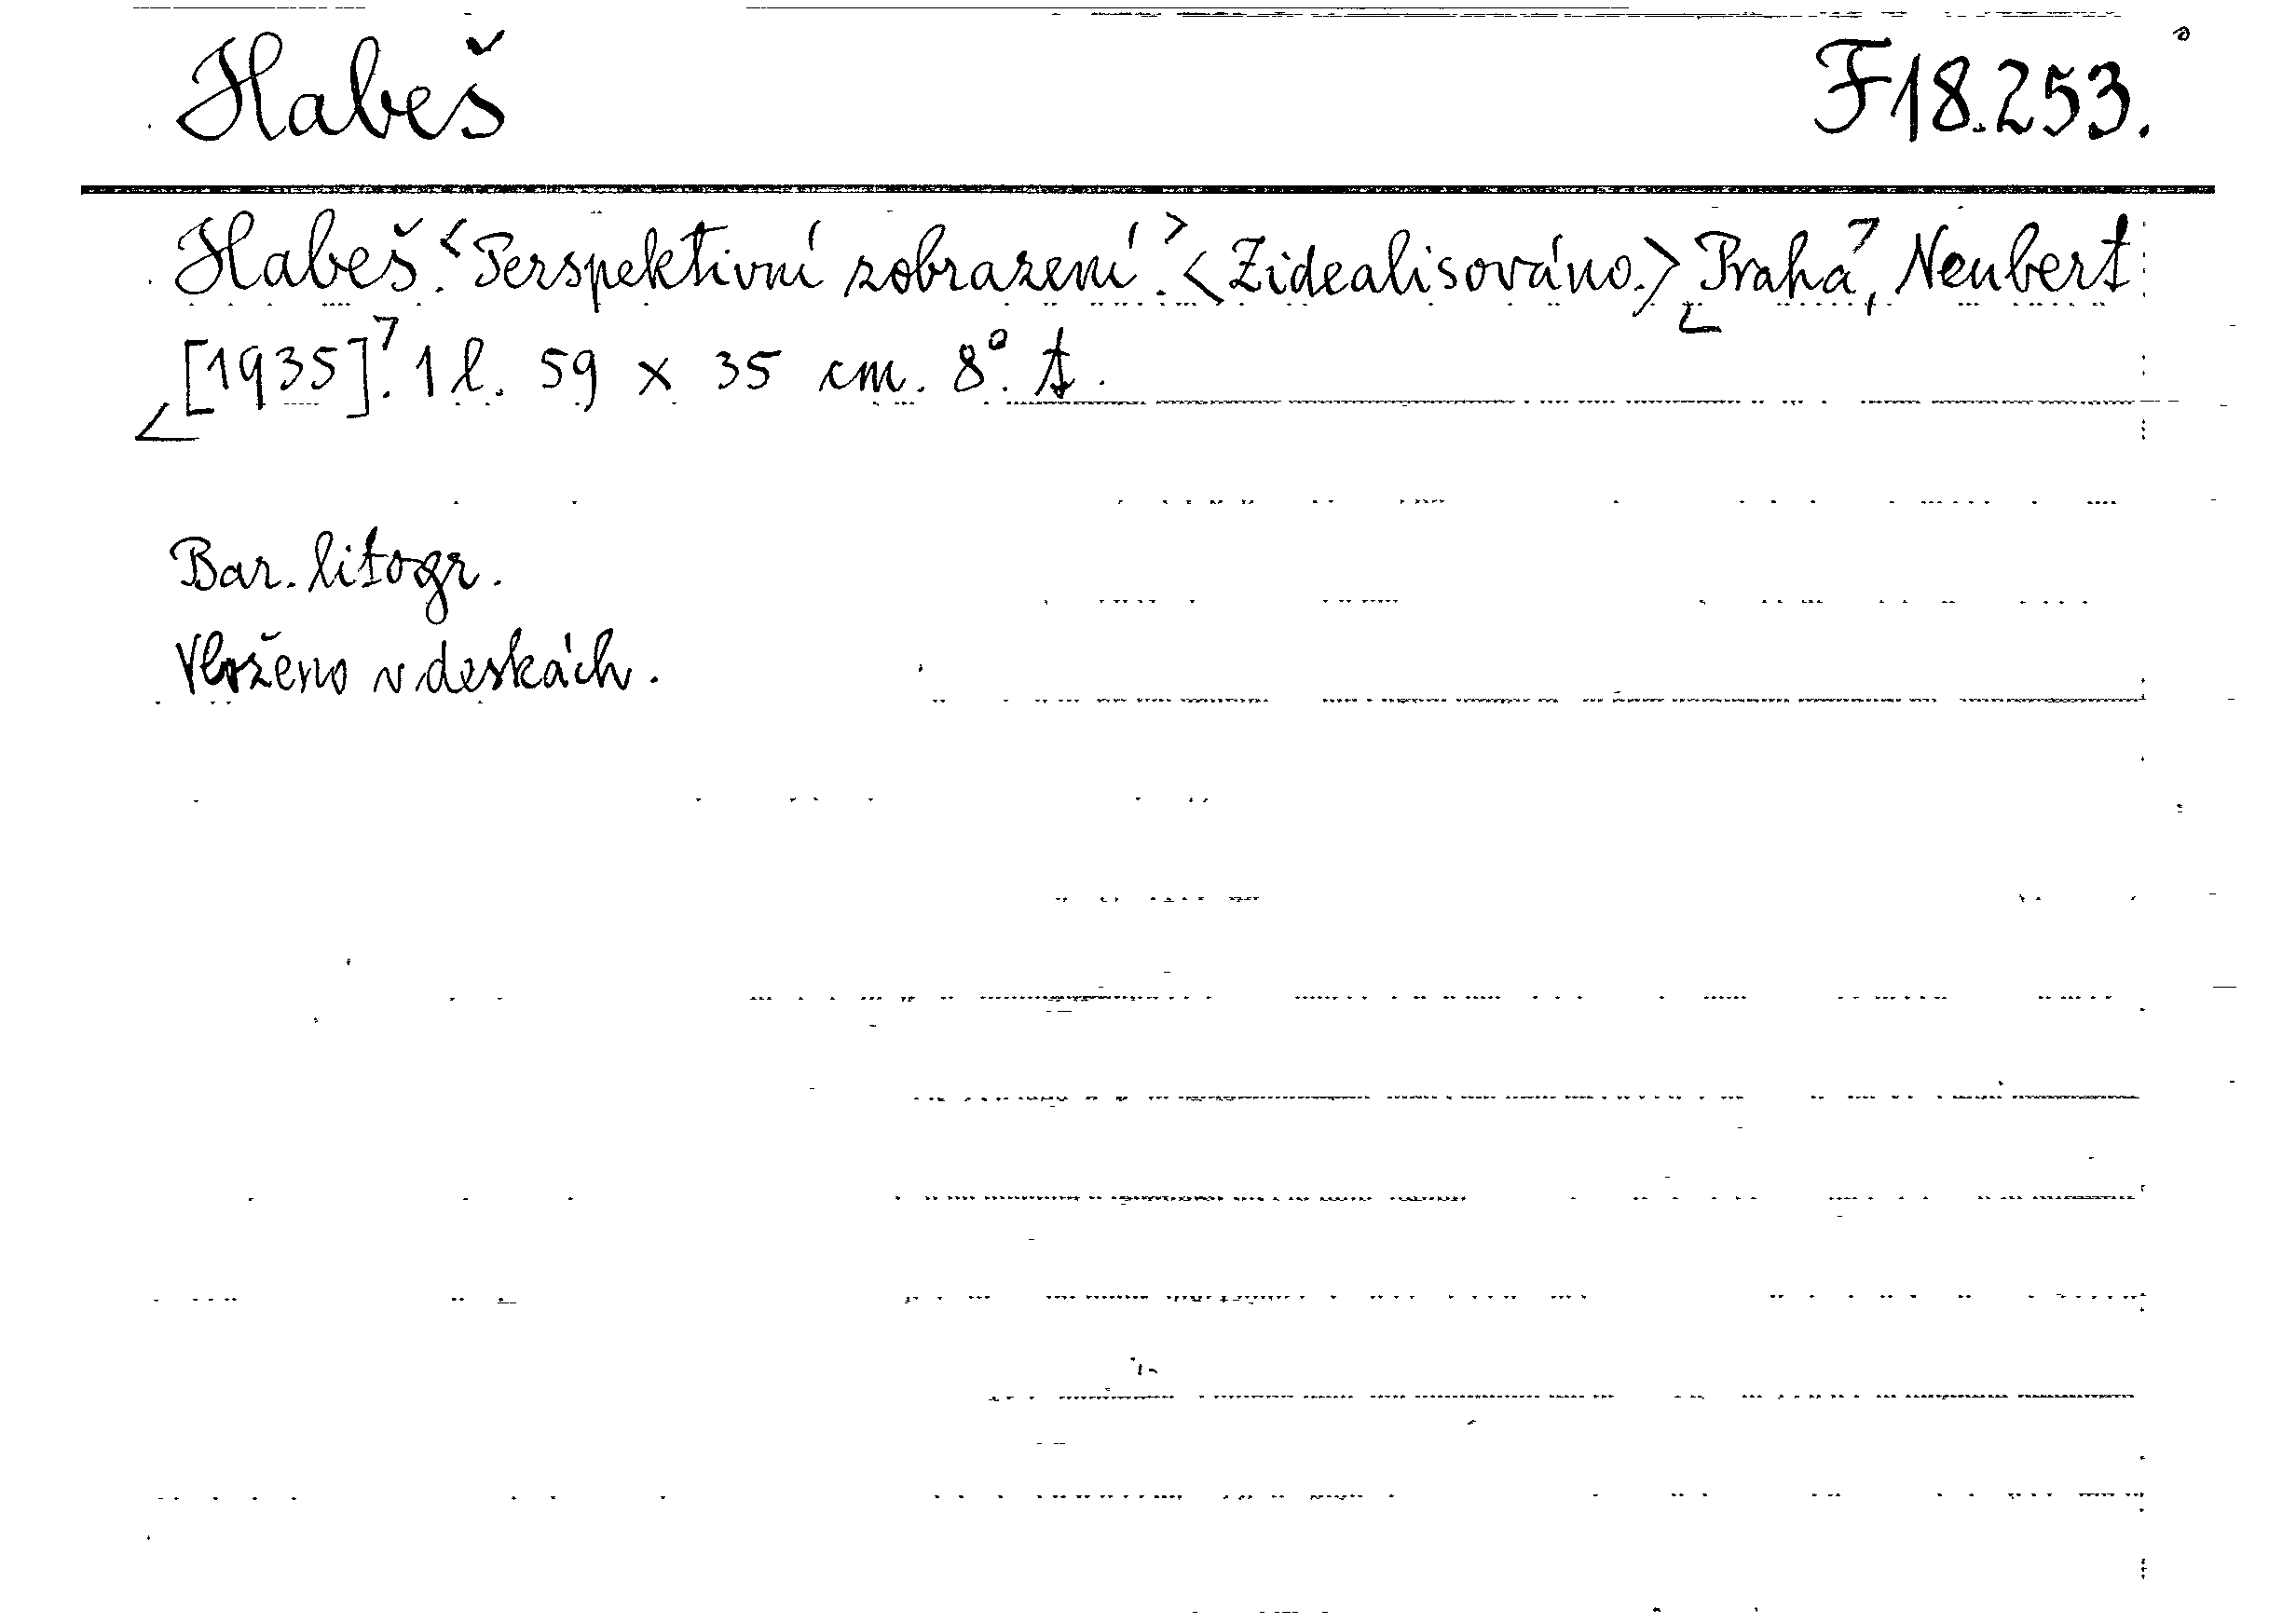 Habeš F 18.253.
Habeš. <Perspektivní zobrazení.> <Zidealisováno.> Praha, Neubert
[1935]. 1 l. 59 x 35 cm. 8°. t.
Bar. litogr.
Vloženo v deskách.